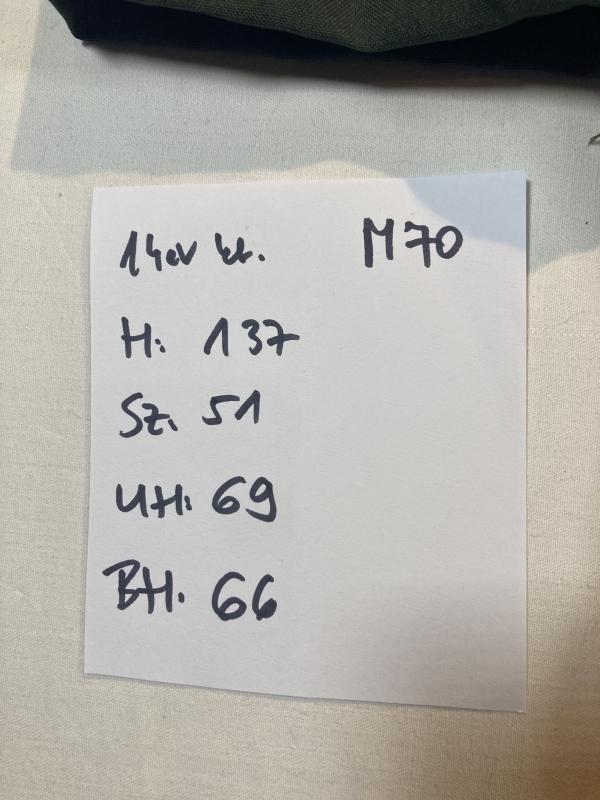 14ev kt. M70
H: 137
Sz. 51
UH: 69
BH. 66